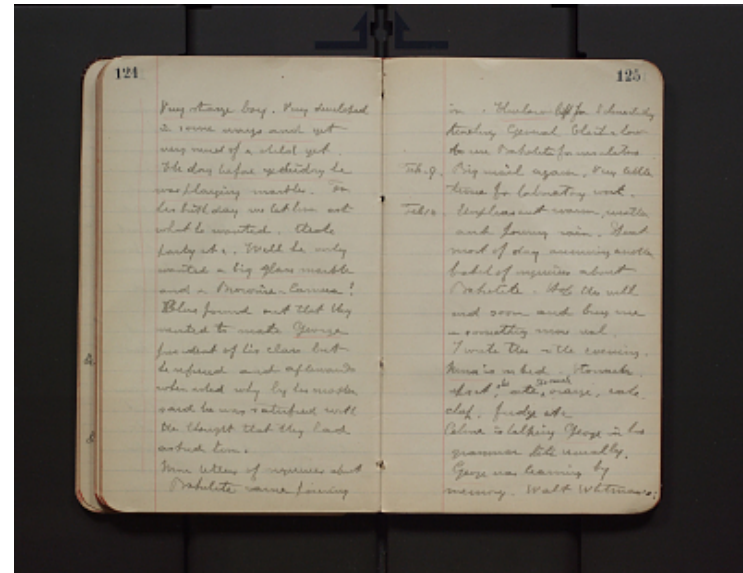 124
Very strange boy. Very developed
in some ways and yet
very much of a child yet.
The day before yesterday he
was playing marbles. For
his birthday we let him ask
what he wanted.
party etc. Well he only
wanted a big glass marble
and a Brownie Camera!
found out that they
wanted to make George
president of his class but
he refused and afterwards
when asked why by his mother
said he was satisfied with
the thought that they had
asked him.
More letters of inquiries about
Bakelite came pouring
125
in. left for Schenectady
General
to use Bakelite for insulators
Feb. 9. Big mail again. Very little
time for laboratory work.
Feb 10. Unpleasant warm, weather
and pouring rain. Spent
most of day answering another
batch of inquiries about
Bakelite. this will
end soon and bring me
something more real.
I write this in the evening.
Nina is in bed. Stomach
upset, she ate too much orange, cake
fudge etc
Celine is helping George in his
grammar
George was learning by
memory. Walt Whitman's: